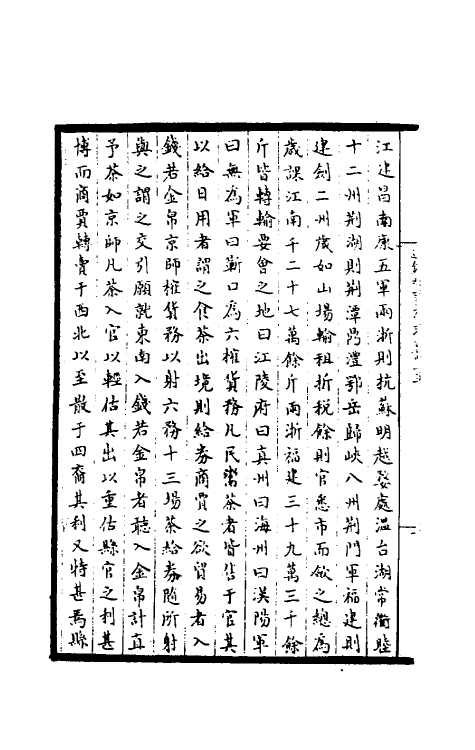 江建昌南康五軍兩浙則杭蘇明越婺處温台湖常衢睦
十二州荆湖則荆潭鼎澧鄂岳歸峽八州荆門軍福建則
建劍二州歲如山場輸租折税餘則官悉市而斂之總為
歲課江南千二十七萬餘斤兩浙福建三十九萬三千餘
斤皆轉輸要會之地曰江陵府曰真州曰海州曰漢陽軍
曰無為軍曰蘄口為六榷貨務凡民鬻茶者皆售于官其
以給日用者謂之食茶出境則給券商賈之欲貿易者入
錢若金帛京師榷貨務以射六務十三場茶給券隨所射
與之謂之交引願就東南入錢若金帛者聽入金帛計直
予茶如京師凡茶入官以輕估其出以重估縣官之利甚
博而商賈轉賣于西北以至散于四裔其利又特甚焉縣